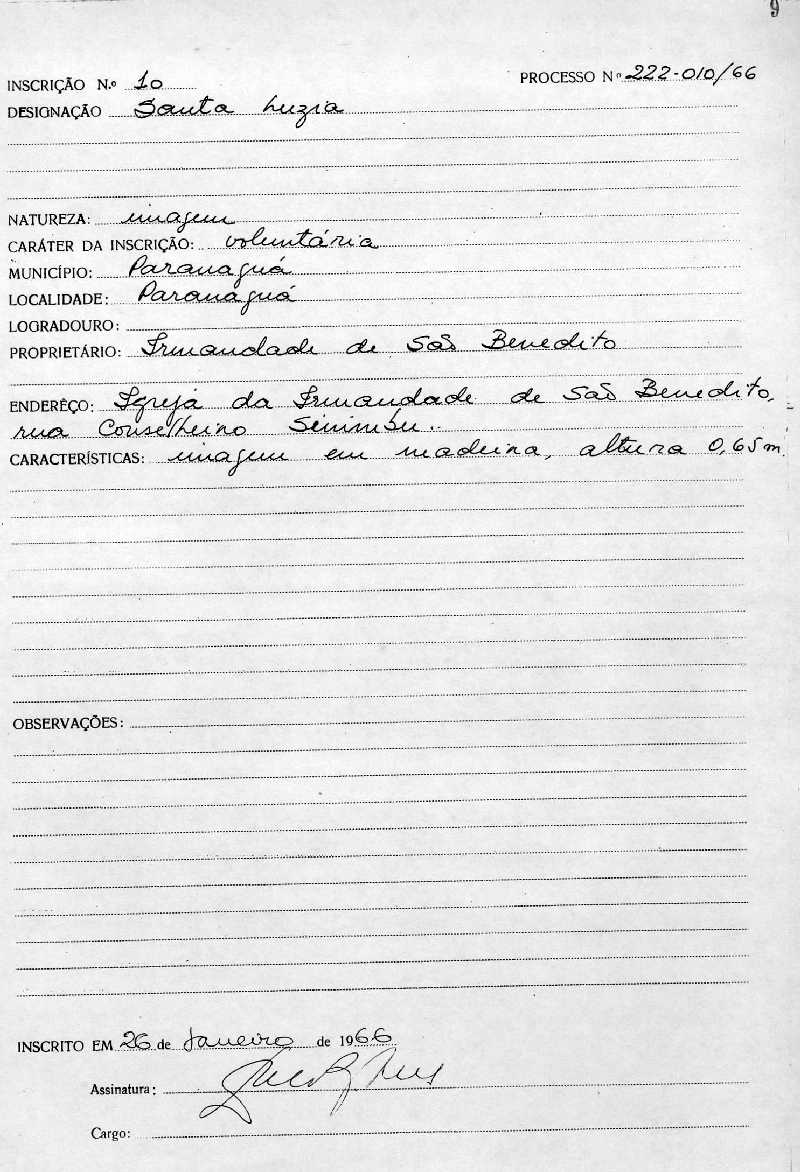 9
INSCRIÇÃO N.º 10 PROCESSO Nº 222-010/66
DESIGNAÇÃO Santa Luzia
NATUREZA: imagem
CARÁTER DA INSCRIÇÃO: voluntária
MUNICÍPIO: Paranaguá
LOCALIDADE: Paranaguá
LOGRADOURO:
PROPRIETÁRIO: Irmandade de São Benedito
ENDERÊÇO: Igreja da Irmandade de São Benedito,
rua Conselheiro Sinimbu.
CARACTERÍSTICAS: imagem em madeira, altura 0,65m.
OBSERVAÇÕES:
INSCRITO EM 26 de Janeiro de 1966
Assinatura:
Cargo: